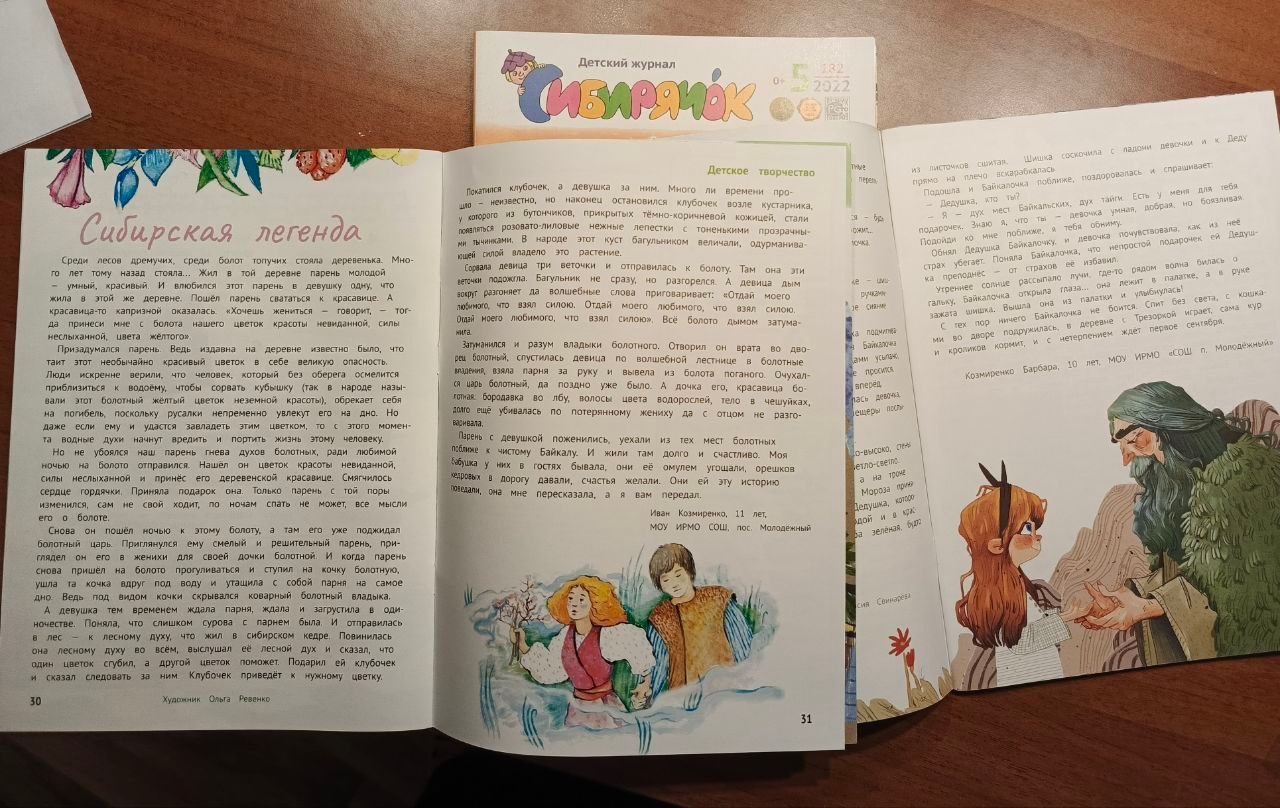 Детский журнал
СИБИРЯЧОК
0+
5
232
2022
Сибирская легенда
Среди лесов дремучих, среди болот топучих стояла деревенька. Мно-
го лет тому назад стояла... Жил в той деревне парень молодой
– умный, красивый. И влюбился этот парень в девушку одну, что
жила в этой же деревне. Пошёл парень свататься к красавице. А
красавица-то капризной оказалась. «Хочешь жениться – говорит, – тог-
да принеси мне с болота нашего цветок красоты невиданной, силы
неслыханной, цвета жёлтого».
Призадумался парень. Ведь издавна на деревне известно было, что
таит этот необычайно красивый цветок в себе великую опасность.
Люди искренне верили, что человек, который без оберега осмелится
приблизиться к водоёму, чтобы сорвать кубышку (так в народе назы-
вали этот болотный жёлтый цветок неземной красоты), обрекает себя
на погибель, поскольку русалки непременно увлекут его на дно. Но
даже если ему и удастся завладеть этим цветком, то с этого момен-
та водные духи начнут вредить и портить жизнь этому человеку.
Но не убоялся наш парень гнева духов болотных, ради любимой
ночью на болото отправился. Нашёл он цветок красоты невиданной,
силы неслыханной и принёс его деревенской красавице. Смягчилось
сердце гордячки. Приняла подарок она. Только парень с той поры
изменился, сам не свой ходит, по ночам спать не может, все мысли
его о болоте.
Снова он пошёл ночью к этому болоту, а там его уже поджидал
болотный царь. Приглянулся ему смелый и решительный парень, при-
глядел он его в женихи для своей дочки болотной. И когда парень
снова пришёл на болото прогуливаться и ступил на кочку болотную,
ушла та кочка вдруг под воду и утащила с собой парня на самое
дно. Ведь под видом кочки скрывался коварный болотный владыка.
А девушка тем временем ждала парня, ждала и загрустила в оди-
ночестве. Поняла, что слишком сурова с парнем была. И отправилась
в лес – к лесному духу, что жил в сибирском кедре. Повинилась
она лесному духу во всём, выслушал её лесной дух и сказал, что
один цветок сгубил, а другой цветок поможет. Подарил ей клубочек
и сказал следовать за ним Клубочек приведёт к нужному цветку.
30
Художник Ольга Ревенко
Детское творчество
Покатился клубочек, а девушка за ним. Много ли времени про-
шло – неизвестно, но наконец остановился клубочек возле кустарника,
у которого из бутончиков, прикрытых тёмно-коричневой кожицей, стали
появляться розовато-лиловые нежные лепестки с тоненькими прозрачны-
ми тычинками. В народе этот куст багульником величали, одурманива-
ющей силой владело это растение.
Сорвала девица три веточки и отправилась к болоту. Там она эти
веточки подожгла. Багульник не сразу, но разгорелся. А девица дым
вокруг разгоняет да волшебные слова приговаривает: «Отдай моего
любимого, что взял силою. Отдай моего любимого, что взял силою.
Отдай моего любимого, что взял силою». Всё болото дымом затума-
нила.
Затуманился и разум владыки болотного. Отворил он врата во дво-
рец болотный, спустилась девица по волшебной лестнице в болотные
владения, взяла парня за руку и вывела из болота поганого. Очухал-
ся царь болотный, да поздно уже было. А дочка его, красавица бо-
лотная: бородавка во лбу, волосы цвета водорослей, тело в чешуйках,
долго ещё убивалась по потерянному жениху да с отцом не разго-
варивала.
Парень с девушкой поженились, уехали из тех мест болотных
поближе к чистому Байкалу. И жили там долго и счастливо. Моя
бабушка у них в гостях бывала, они её омулем угощали, орешков
кедровых в дорогу давали, счастья желали. Они ей эту историю
поведали, она мне пересказала, а я вам передал.
Иван Козмиренко, 11 лет,
МОУ ИРМО СОШ, пос. Молодёжный
31
из листочков сшитая. Шишка соскочила с ладони девочки и к Деду
прямо на плечо вскарабкалась
Подошла и Байкалочка поближе, поздоровалась и спрашивает:
– Дедушка, кто ты?
– Я – дух мест Байкальских, дух тайги. Есть у меня для тебя
подарочек. Знаю я, что ты – девочка умная, добрая, но боязливая
Подойди ко мне поближе, я тебя обниму.
Обнял Дедушка Байкалочку, и девочка почувствовала, как из неё
страх убегает. Поняла Байкалочка, что непростой подарочек ей Дедуш-
ка преподнёс – от страхов её избавил.
Утреннее солнце рассыпало лучи, где-то рядом волна билась о
гальку, Байкалочка открыла глаза... она лежит в палатке, а в руке
зажата шишка. Вышла она из палатки и улыбнулась!
С тех пор ничего Байкалочка не боится. Спит без света, с кошка-
ми во дворе подружилась, в деревне с Трезоркой играет, сама кур
и кроликов кормит, и с нетерпением ждёт первое сентября.
Козмиренко Барбара, 10 лет, МОУ ИРМО «СОШ п. Молодёжный»
подмигива
Байкалочка
усыпаю,
просился
вперед.
лась девочка,
пещеры послы-
о-высоко, стены
ветло-светло.
а на троне
Мороза прине
Дедушка, которо
дой и в крас-
ра зелёная, будто
сия Свинарёва